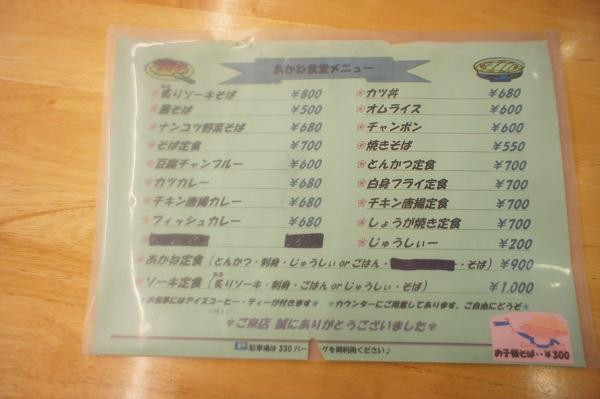 あかね食堂メニュー
炙りソーキそば ¥800
そば ¥500
ナンコツ野菜そば ¥680
そば定食 ¥700
豆腐チャンプルー ¥600
カツカレー ¥680
チキン唐揚カレー ¥680
フィッシュカレー ¥680
カツ丼 ¥680
オムライス ¥600
チャンポン ¥600
焼きそば ¥550
とんかつ定食 ¥700
白身フライ定食 ¥700
チキン唐揚定食 ¥700
しょうが焼き定食 ¥700
じゅうしぃー ¥200
あかね定食(とんかつ・刺身・じゅうしぃorごはん・ ・そば) ¥900
ソーキ定食(炙りソーキ・刺身・ごはんorじゅうしぃ・そば) ¥1,000
★お食事にはアイスコーヒー・ティーが付きます★ ★カウンターにご用意してあります、ご自由にどうぞ★
*ご来店 誠にありがとうございました*
駐車場は330パー グを御利用ください♪
お子様そば・・¥300